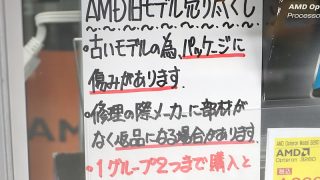 AMD旧モデル売り尽くし
・古いモデルの為、パッケージに
傷みがあります
・修理の際メーカーに部材が
なく返品になる場合があります
・1グループ2つまで購入と
AMD Op
Processo
AMD Opteron Model 3280
AMD
Opteron 3280
税込